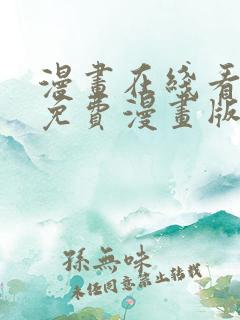 漫畫在綫看
免費漫畫版
孫無味
未經同意禁止轉載